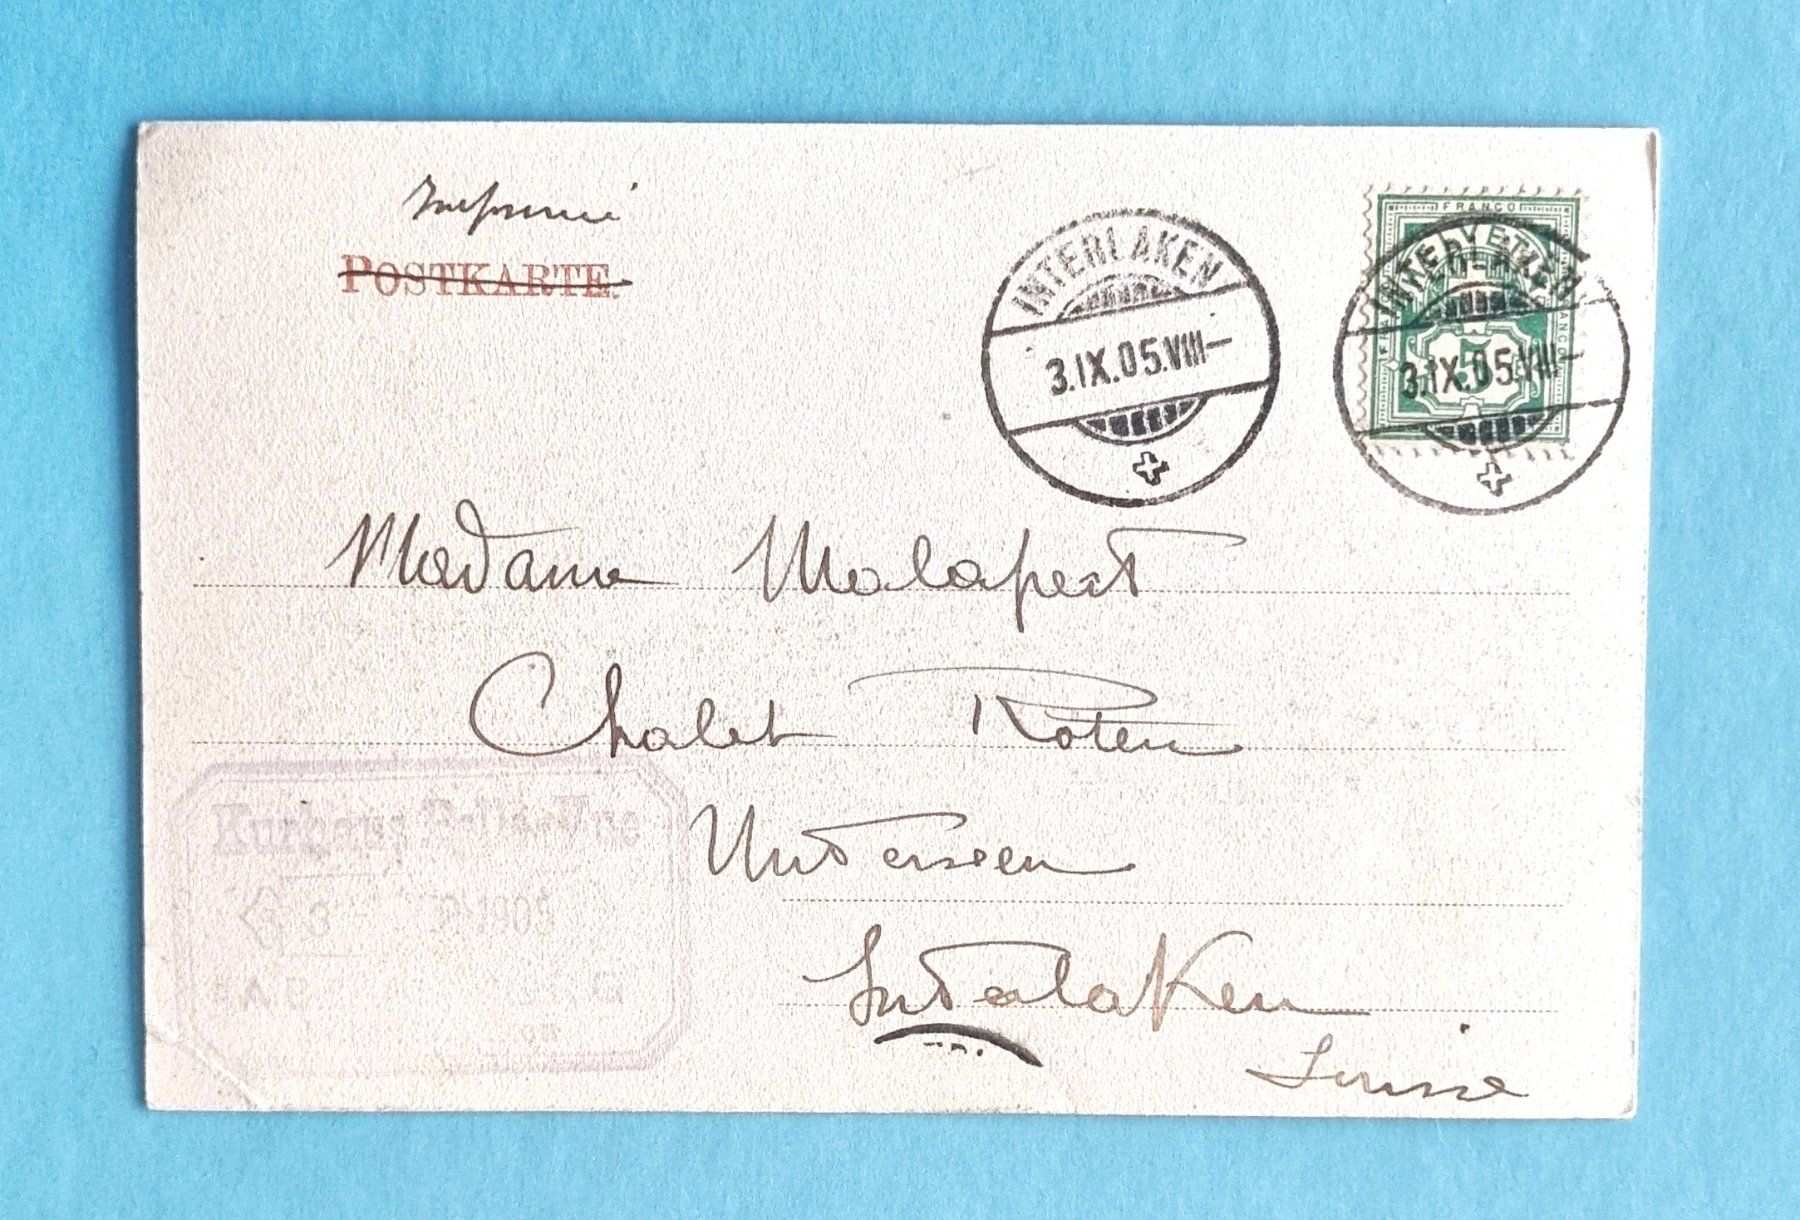 Imprimé
POSTKARTE.
INTERLAKEN
3.IX.05.VIII—
FRANCO
HELVETIA
FRANCO
FRANCO
5
INTERLAKEN
3.IX.05.VIII—
Madame Malapert
Chalet Roten
Unterseen
Interlaken
Suisse
Kurhaus Belle-Vue
3 1905